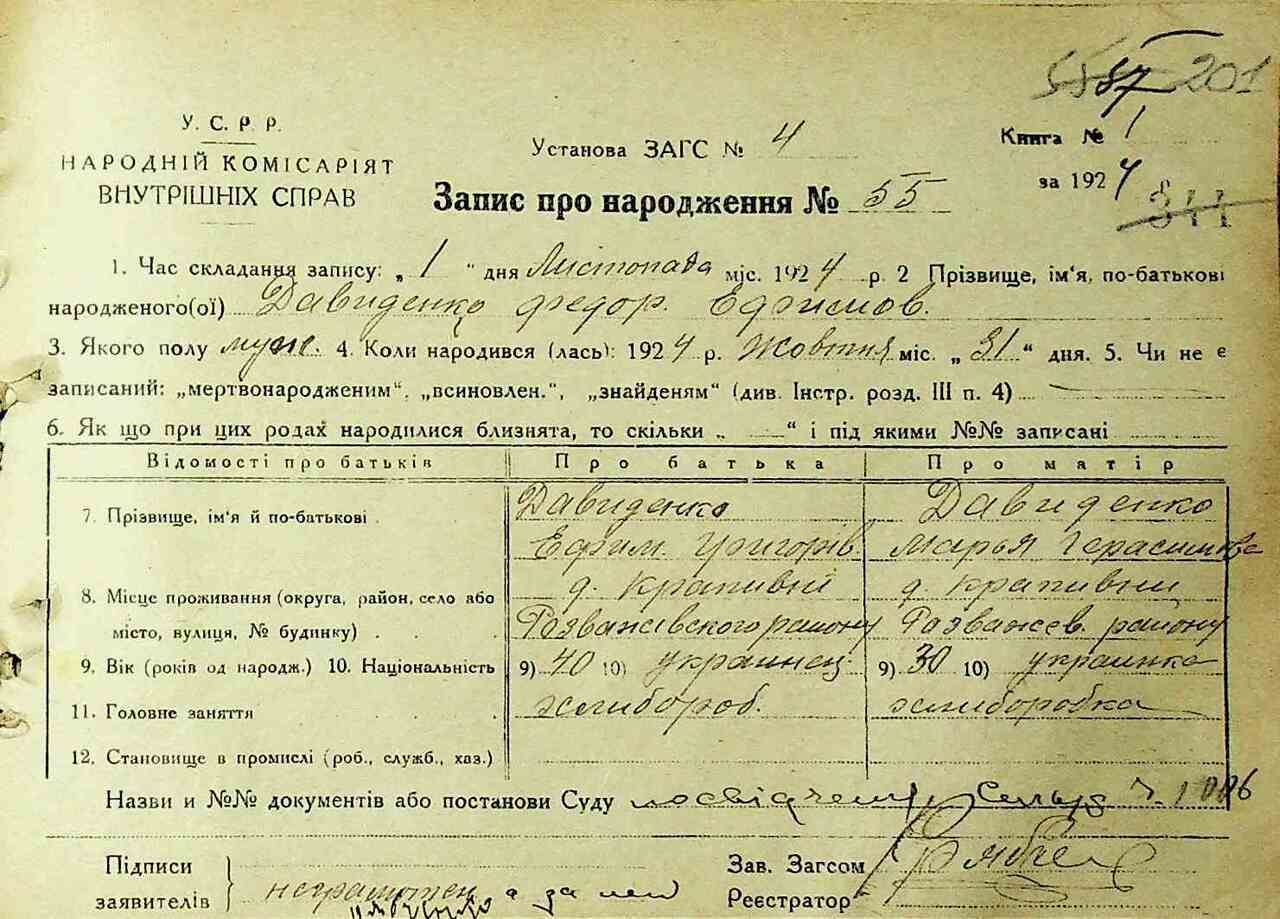 57 201
У. С. Р. Р.
НАРОДНІЙ КОМІСАРІЯТ
ВНУТРІШНІХ СПРАВ
Установа ЗАГС № 4
Книга № 1
за 1924
Запис про народження № 55
344
1. Час складання запису: „ 1 " дня Листопада міс. 1924 р. 2 Прізвище, ім'я, по-батькові
народженого(ої) Давиденко Федор. Ефимов.
3. Якого полу муж. 4. Коли народився (лась): 1924 р. Жовтня міс. „ 31 " дня. 5. Чи не є
записаний: „мертвонародженим", „всиновлен.", „знайденям" (див. Інстр. розд. III п. 4)
6. Як що при цих родах народилися близнята, то скільки „ — " і під якими №№ записані
Відомості про батьків Про батька Про матір
7. Прізвище, ім'я й по-батькові Давиденко Давиденко
Ефим. Григорів. Марья Герасимова
8. Місце проживання (округа, район, село або д. Крапивні д. Крапивні
місто, вулиця, № будинку) Розважевского району Розважев. району
9. Вік (років од народж.) 10. Національність 9) 40 10) украинец 9) 30 10) украинка
11. Головне заняття хлибороб. хлиборобка
12. Становище в промислі (роб., служб., хаз.)
Назви и №№ документів або постанови Суду
Підписи
заявителів
неграмотен а за него
Зав. Загсом
Реєстратор